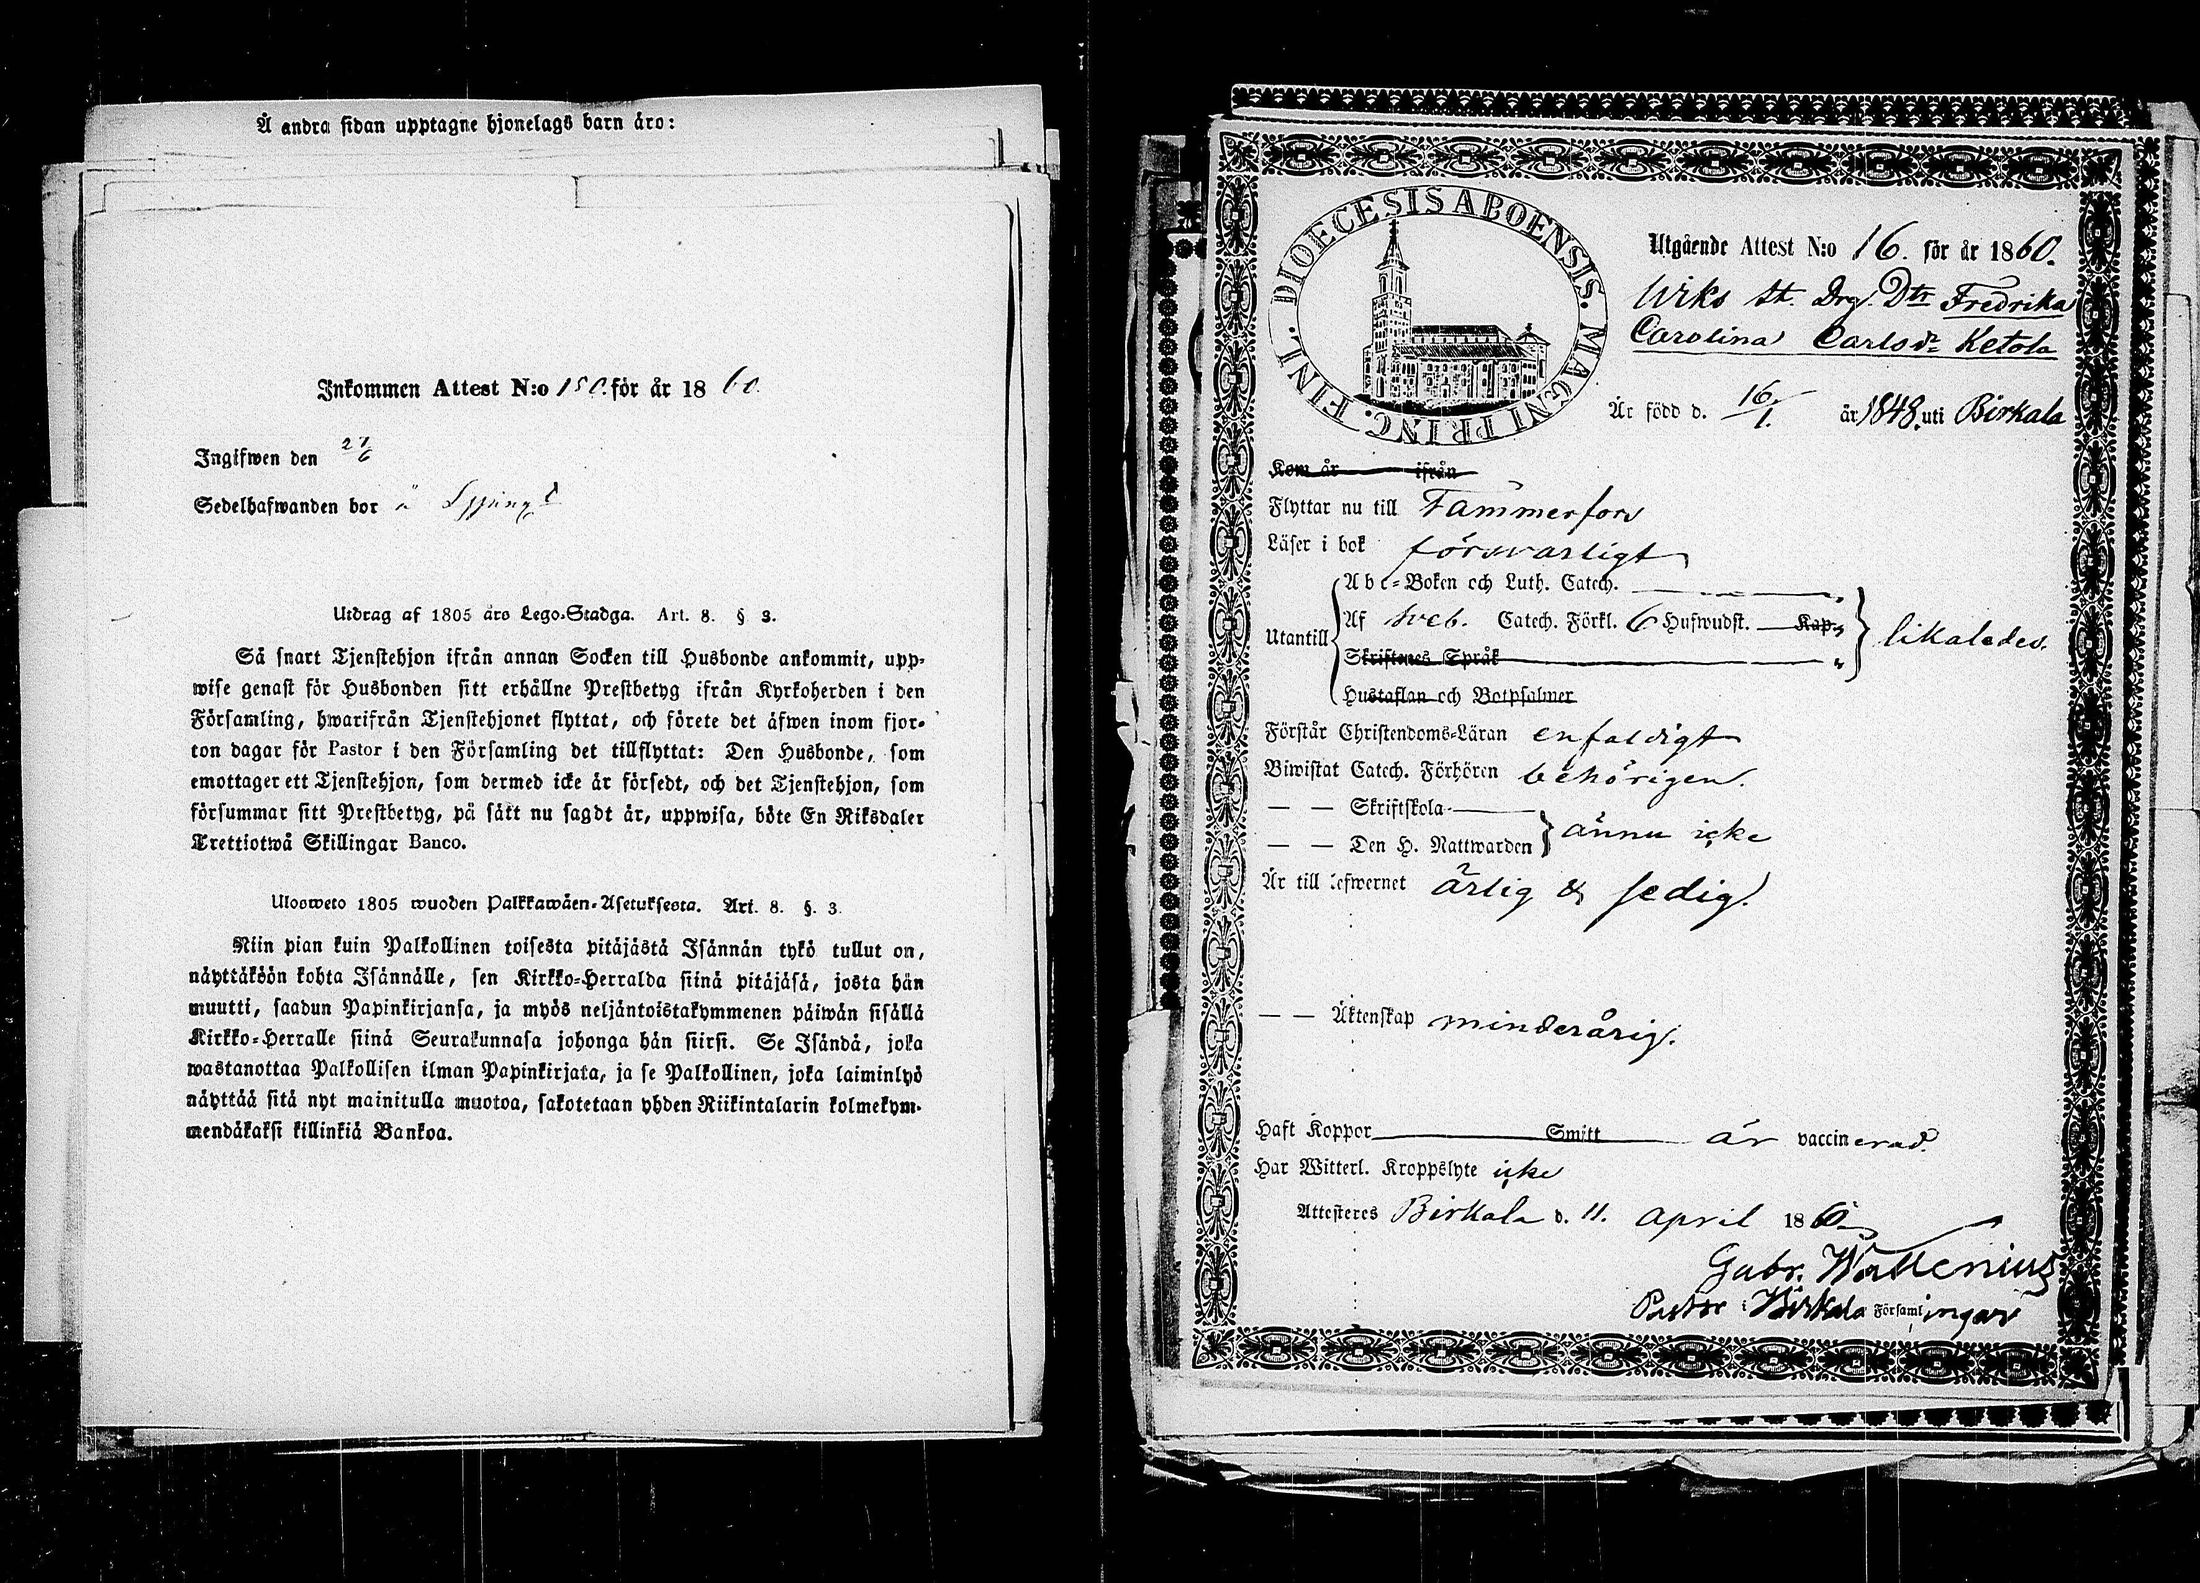 Å andra sidan upptagne hjonelags barn äro:
Inkommen Attest N:o 150. för år 1860
Ingifwen den 27/6
Sedelhafwanden bor å
Utdrag af 1805 års Lego-Stadga. Art. 8. § 3.
Så snart Tjenstehjon ifrån annan Socken till Husbonde ankommit, upp-
wise genast för Husbonden sitt erhållne Prestbetyg ifrån Kyrkoherden i den
Församling, hwarifrån Tjenstehjonet flyttat, och förete det äfwen inom fjor-
ton dagar för Pastor i den Församling det tillflyttat: Den Husbonde, som
emottager ett Tjenstehjon, som dermed icke är försedt, och det Tjenstehjon, som
försummar sitt Prestbetyg, på sätt nu sagdt är, uppwisa, böte En Riksdaler
Trettiotwå Skillingar Banco.
Ulosweto 1805 wuoden Palkkawäen-Asetuksesta. Art. 8. §. 3.
Niin pian kuin Palkollinen toisesta pitäjästä Isännän tykö tullut on,
näyttäköön kohta Isännälle, sen Kirkko-Herralda siinä pitäjäsä, josta hän
muutti, saadun Papinkirjansa, ja myös neljäntoistakymmenen päiwän sisällä
Kirkko-Herralle siinä Seurakunnasa johonga hän siirsi. Se Isändä, joka
wastanottaa Palkollisen ilman Papinkirjata, ja se Palkollinen, joka laiminlyö
näyttää sitä nyt mainitulla muotoa, sakotetaan yhden Riikintalarin kolmekym-
mendäkaksi killinkiä Bankoa.
FINL. DIOECESIS ABOENSIS. MAGNI PRINC.
Utgående Attest N:o 16. för år 1860.
Wiks st. Drg. Dtr Fredrika
Carolina Carlsdr Ketola
Är född d. 16/1. år 1848. uti Birkala
Kom år ifrån
Flyttar nu till Tammerfors
Läser i bok försvarligt
Abc-Boken och Luth. Catech. "
Utantill Af sveb. Catech. Förkl. 6 Hufwudst. Kap. likaledes.
Skriftenes Språk "
Hustaflan och Botpsalmer
Förstår Christendoms-Läran enfaldigt
Biwistat Catech. Förhören behörigen.
— — Skriftskola
— — Den H. Nattwarden ännu icke
Är till lefwernet ärlig & sedig.
— — Äktenskap minderårig.
Haft Koppor Smitt är vaccinerad.
Har Witterl. Kroppslyte icke
Attesteres Birkala d. 11. April 1860
Gabr. Wallenius
Pastor i Birkala Församlingar